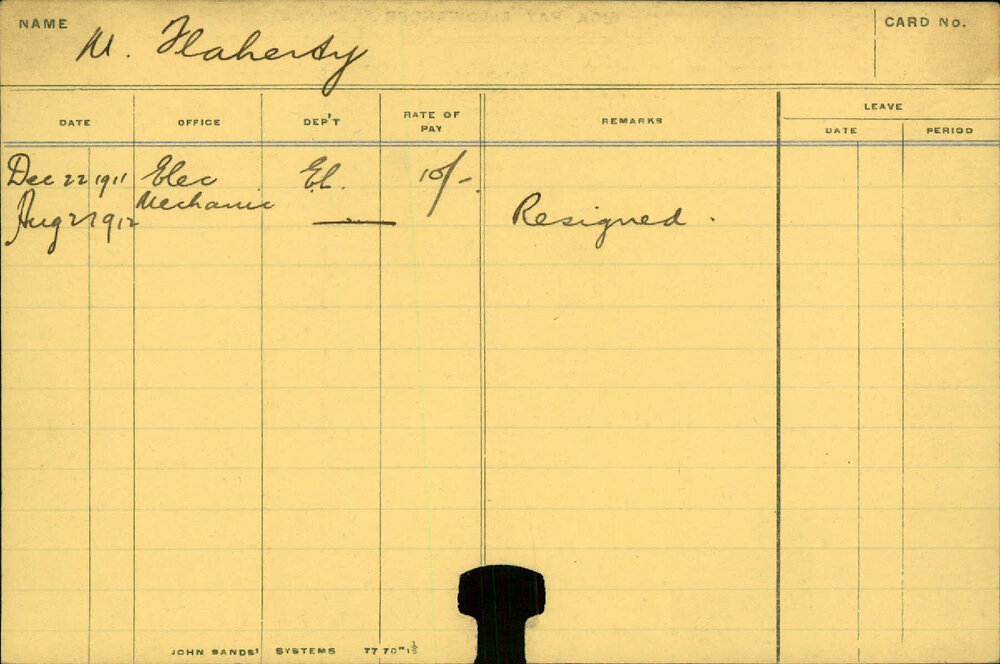 NAME M. Flaherty CARD No.
DATE OFFICE DEP'T RATE OF PAY REMARKS LEAVE
DATE PERIOD
Dec 22 1911 Elec El. 10/-.
Mechanic
Aug 27 1912 — Resigned.
JOHN SANDS' SYSTEMS